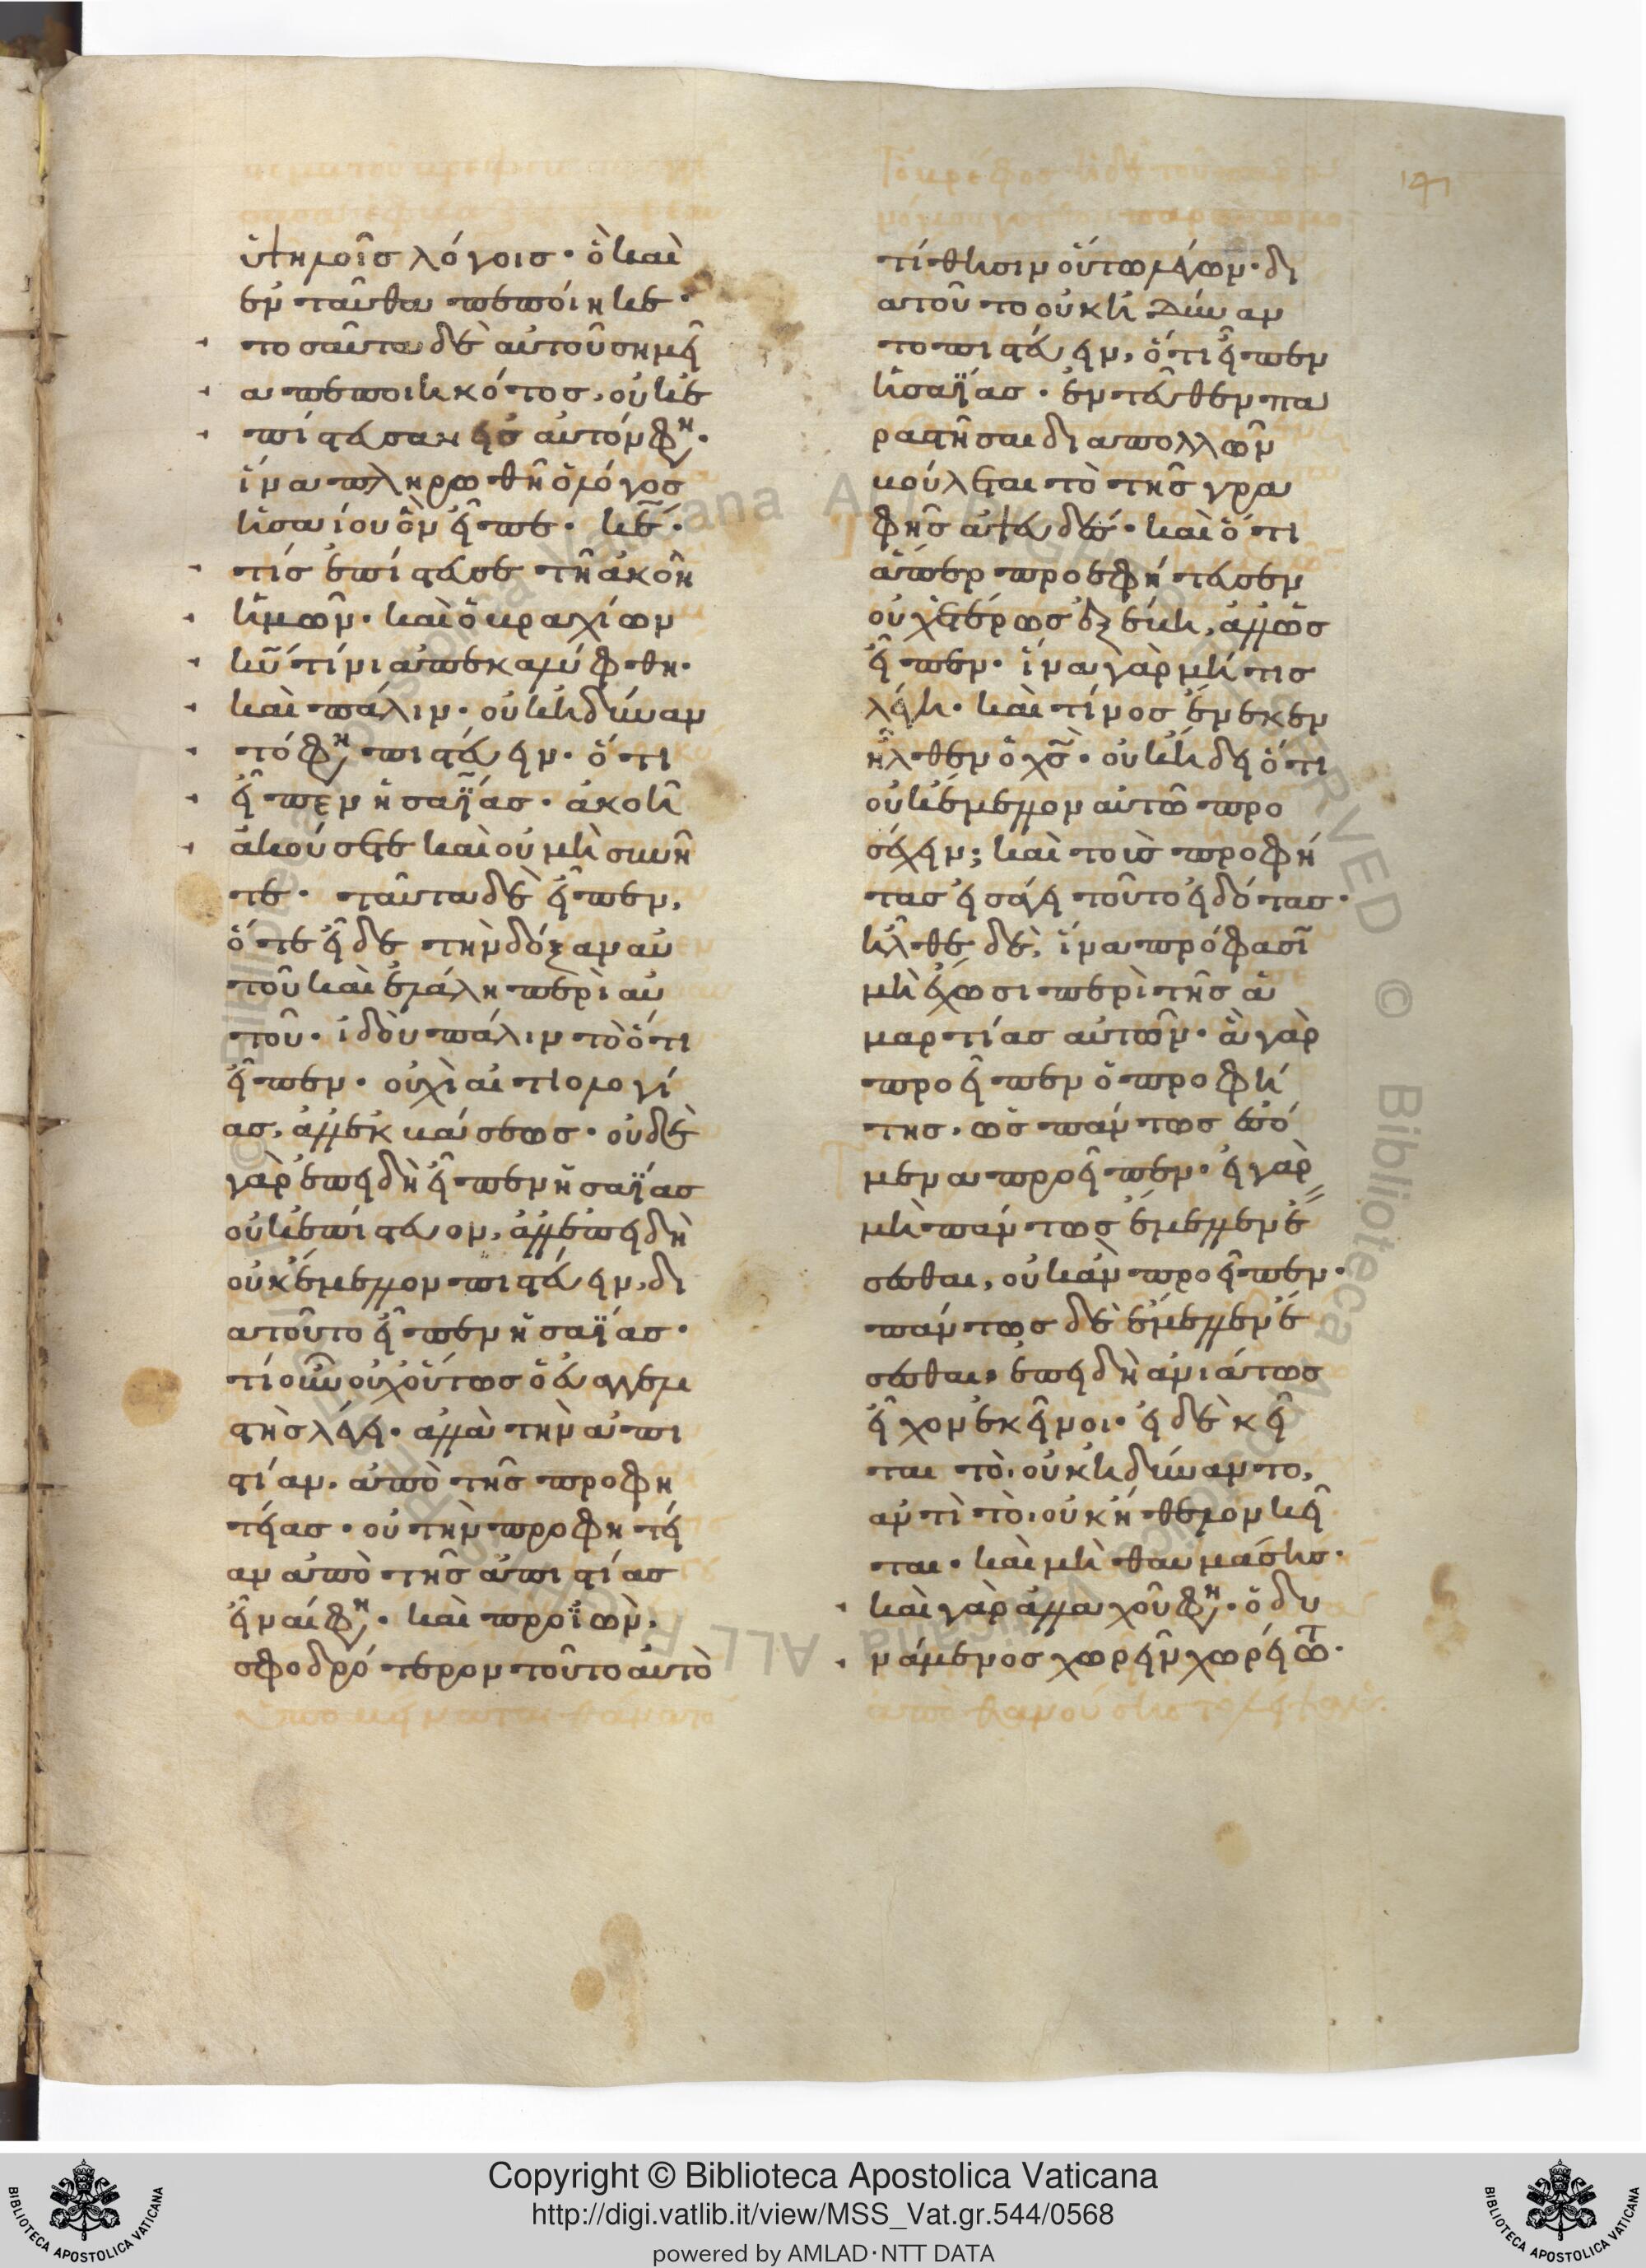 ὑψηλοῖσ λόγοισ· ὃ καὶ
ἐνταῦθα πεποίηκε·
τοσαῦτα δὲ αὐτοῦ σημεῖ
α πεποιηκότοσ, οὐκ ἐ
πίστευσαν εἰσ αὐτόν φη·
ἵνα πληρωθῆ ὁ λόγοσ
ἡσαίου ὃν εἶπε· κε·
τίσ ἐπίστευσε τῆ ἀκοῆ
ἡμῶν· καὶ ὁ βραχίων
κυ τίνι ἀπεκαλύφθη·
καὶ πάλιν· οὐκ ἠδύναν
τό φη πιστεύειν· ὅτι
εἶπεν ἡσαΐασ· ἀκοῆ
ἀκούσετε καὶ οὐ μὴ συνῆ
τε· ταῦτα δὲ εἶπεν,
ὅτε εἶδε τὴν δόξαν αὐ
τοῦ καὶ ἐλάλη περὶ αὐ
τοῦ· ἰδοὺ πάλιν τὸ ὅτι
εἶπεν· οὐχὶ αἰτιολογί
ασ, ἀλλ' ἐκβάσεωσ· οὐδὲ
γὰρ ἐπειδὴ εἶπεν ἡσαΐασ
οὐκ ἐπίστευον, ἀλλ' ἐπειδὴ
οὐκ ἔμελλον πιστεύειν, δι
ατοῦτο εἶπεν ἡσαΐασ·
τί οὖν οὐχ οὕτωσ ὁ εὐαγγελι
στὴσ λέγει· ἀλλὰ τὴν ἀπι
στίαν, ἀπὸ τῆσ προφη
τείασ· οὐ τὴν προφητεί
αν ἀπὸ τῆσ ἀπιστίασ
εἶναί φη· καὶ προϊὼν,
σφοδρότερον τοῦτο αὐτὸ
τίθησιν οὕτω λέγων· δι
ατοῦτο οὐκ ἠδύναν
το πιστεύειν, ὅτι εἶπεν
ἡσαΐασ· ἐντεῦθεν πα
ραστῆσαι διαπολλῶν
βούλεται τὸ τῆσ γρα
φῆσ ἀψευδέσ· καὶ ὅτι
ἅπερ προεφήτευσεν
οὐχ ἑτέρωσ ἐξέβη, ἀλλ' ὡσ
εἶπεν· ἵνα γὰρ μή τισ
λέγη· καὶ τίνοσ ἕνεκεν
ἦλθεν ὁ χσ· οὐκ ἤδει ὅτι
οὐκ ἔμελλον αὐτῶ προ
σέχειν; καὶ τοὺσ προφή
τασ εἰσάγει τοῦτο εἰδότασ·
ἦλθε δὲ, ἵνα πρόφασῑ
μὴ ἔχωσι περὶ τῆσ ἁ
μαρτίασ αὐτῶν· ἃ γὰρ
προεῖπεν ὁ προφή
τησ, ὡσ πάντωσ ἐσό
μενα προεῖπεν· εἰ γὰρ
μὴ πάντωσ ἔμελλεν ἔ
σεσθαι, οὐκ ἂν προεῖπεν·
πάντωσ δὲ ἔμελλεν ἔ
σεσθαι, ἐπειδὴ ἀνιάτωσ
εἶχον ἐκεῖνοι· εἰ δὲ κεῖ
ται τὸ, οὐκ ἠδύναντο,
ἀντὶ τὸ, οὐκ ἤθελον κεῖ
ται· καὶ μὴ θαυμάσησ·
καὶ γὰρ ἀλλαχοῦ φη· ὁ δυ
νάμενοσ χωρεῖν χωρείτω·
Copyright © Biblioteca Apostolica Vaticana
http://digi.vatlib.it/view/MSS_Vat.gr.544/0568
powered by AMLAD·NTT DATA
BIBLIOTECA APOSTOLICA VATICANA
BIBLIOTECA APOSTOLICA VATICANA